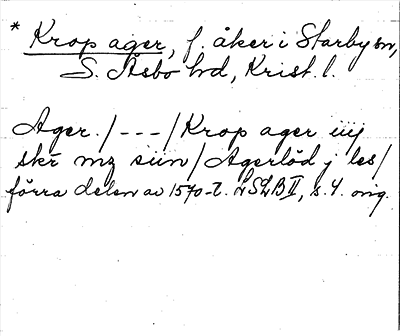 * Krop ager, f. åker i Starby sn,
S. Åsbo hd, Krist. l.
Ager. / - - - / Krop ager iiij
skr mz siin / Agerlöd j les /
förra delen av 1570-t. LSLB II, s. 4. orig.